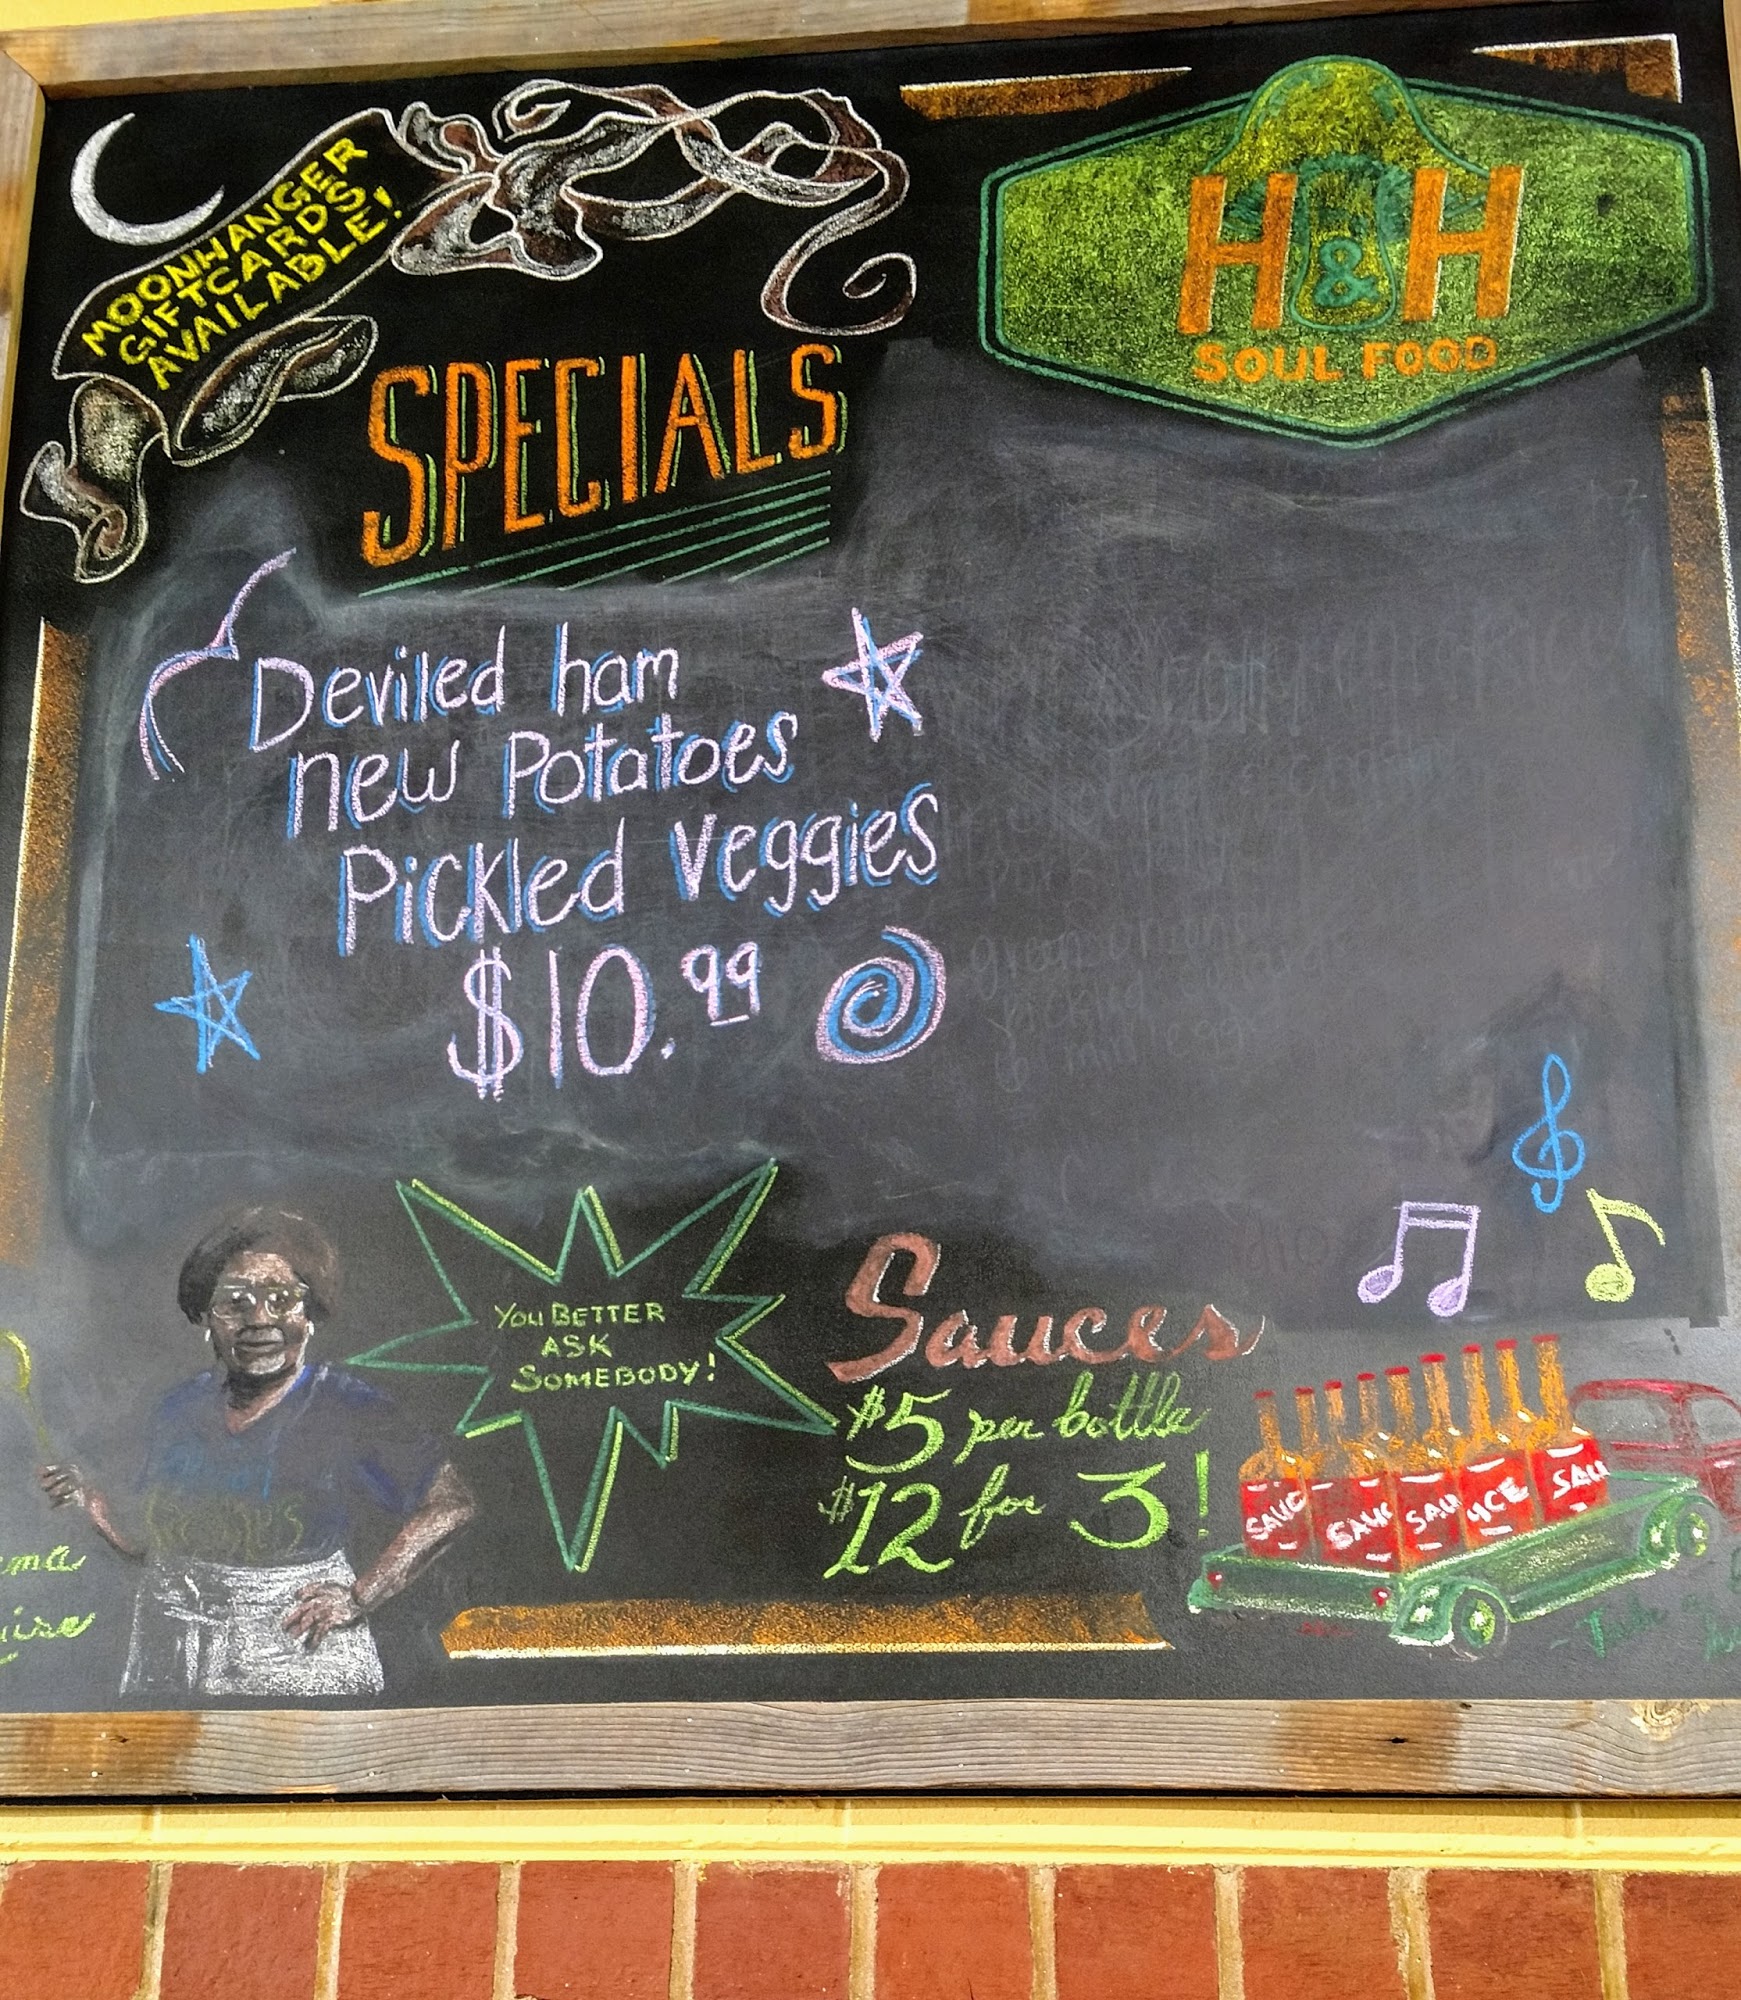 MOONHANGER
GIFTCARDS
AVAILABLE!
H&H
SOUL FOOD
SPECIALS
Deviled ham
new Potatoes
Pickled veggies
$10.99
YOU BETTER
ASK
SOMEBODY!
Sauces
$5 per bottle
$12 for 3!
SAUC
SAUC
SAU
UCE
SAU